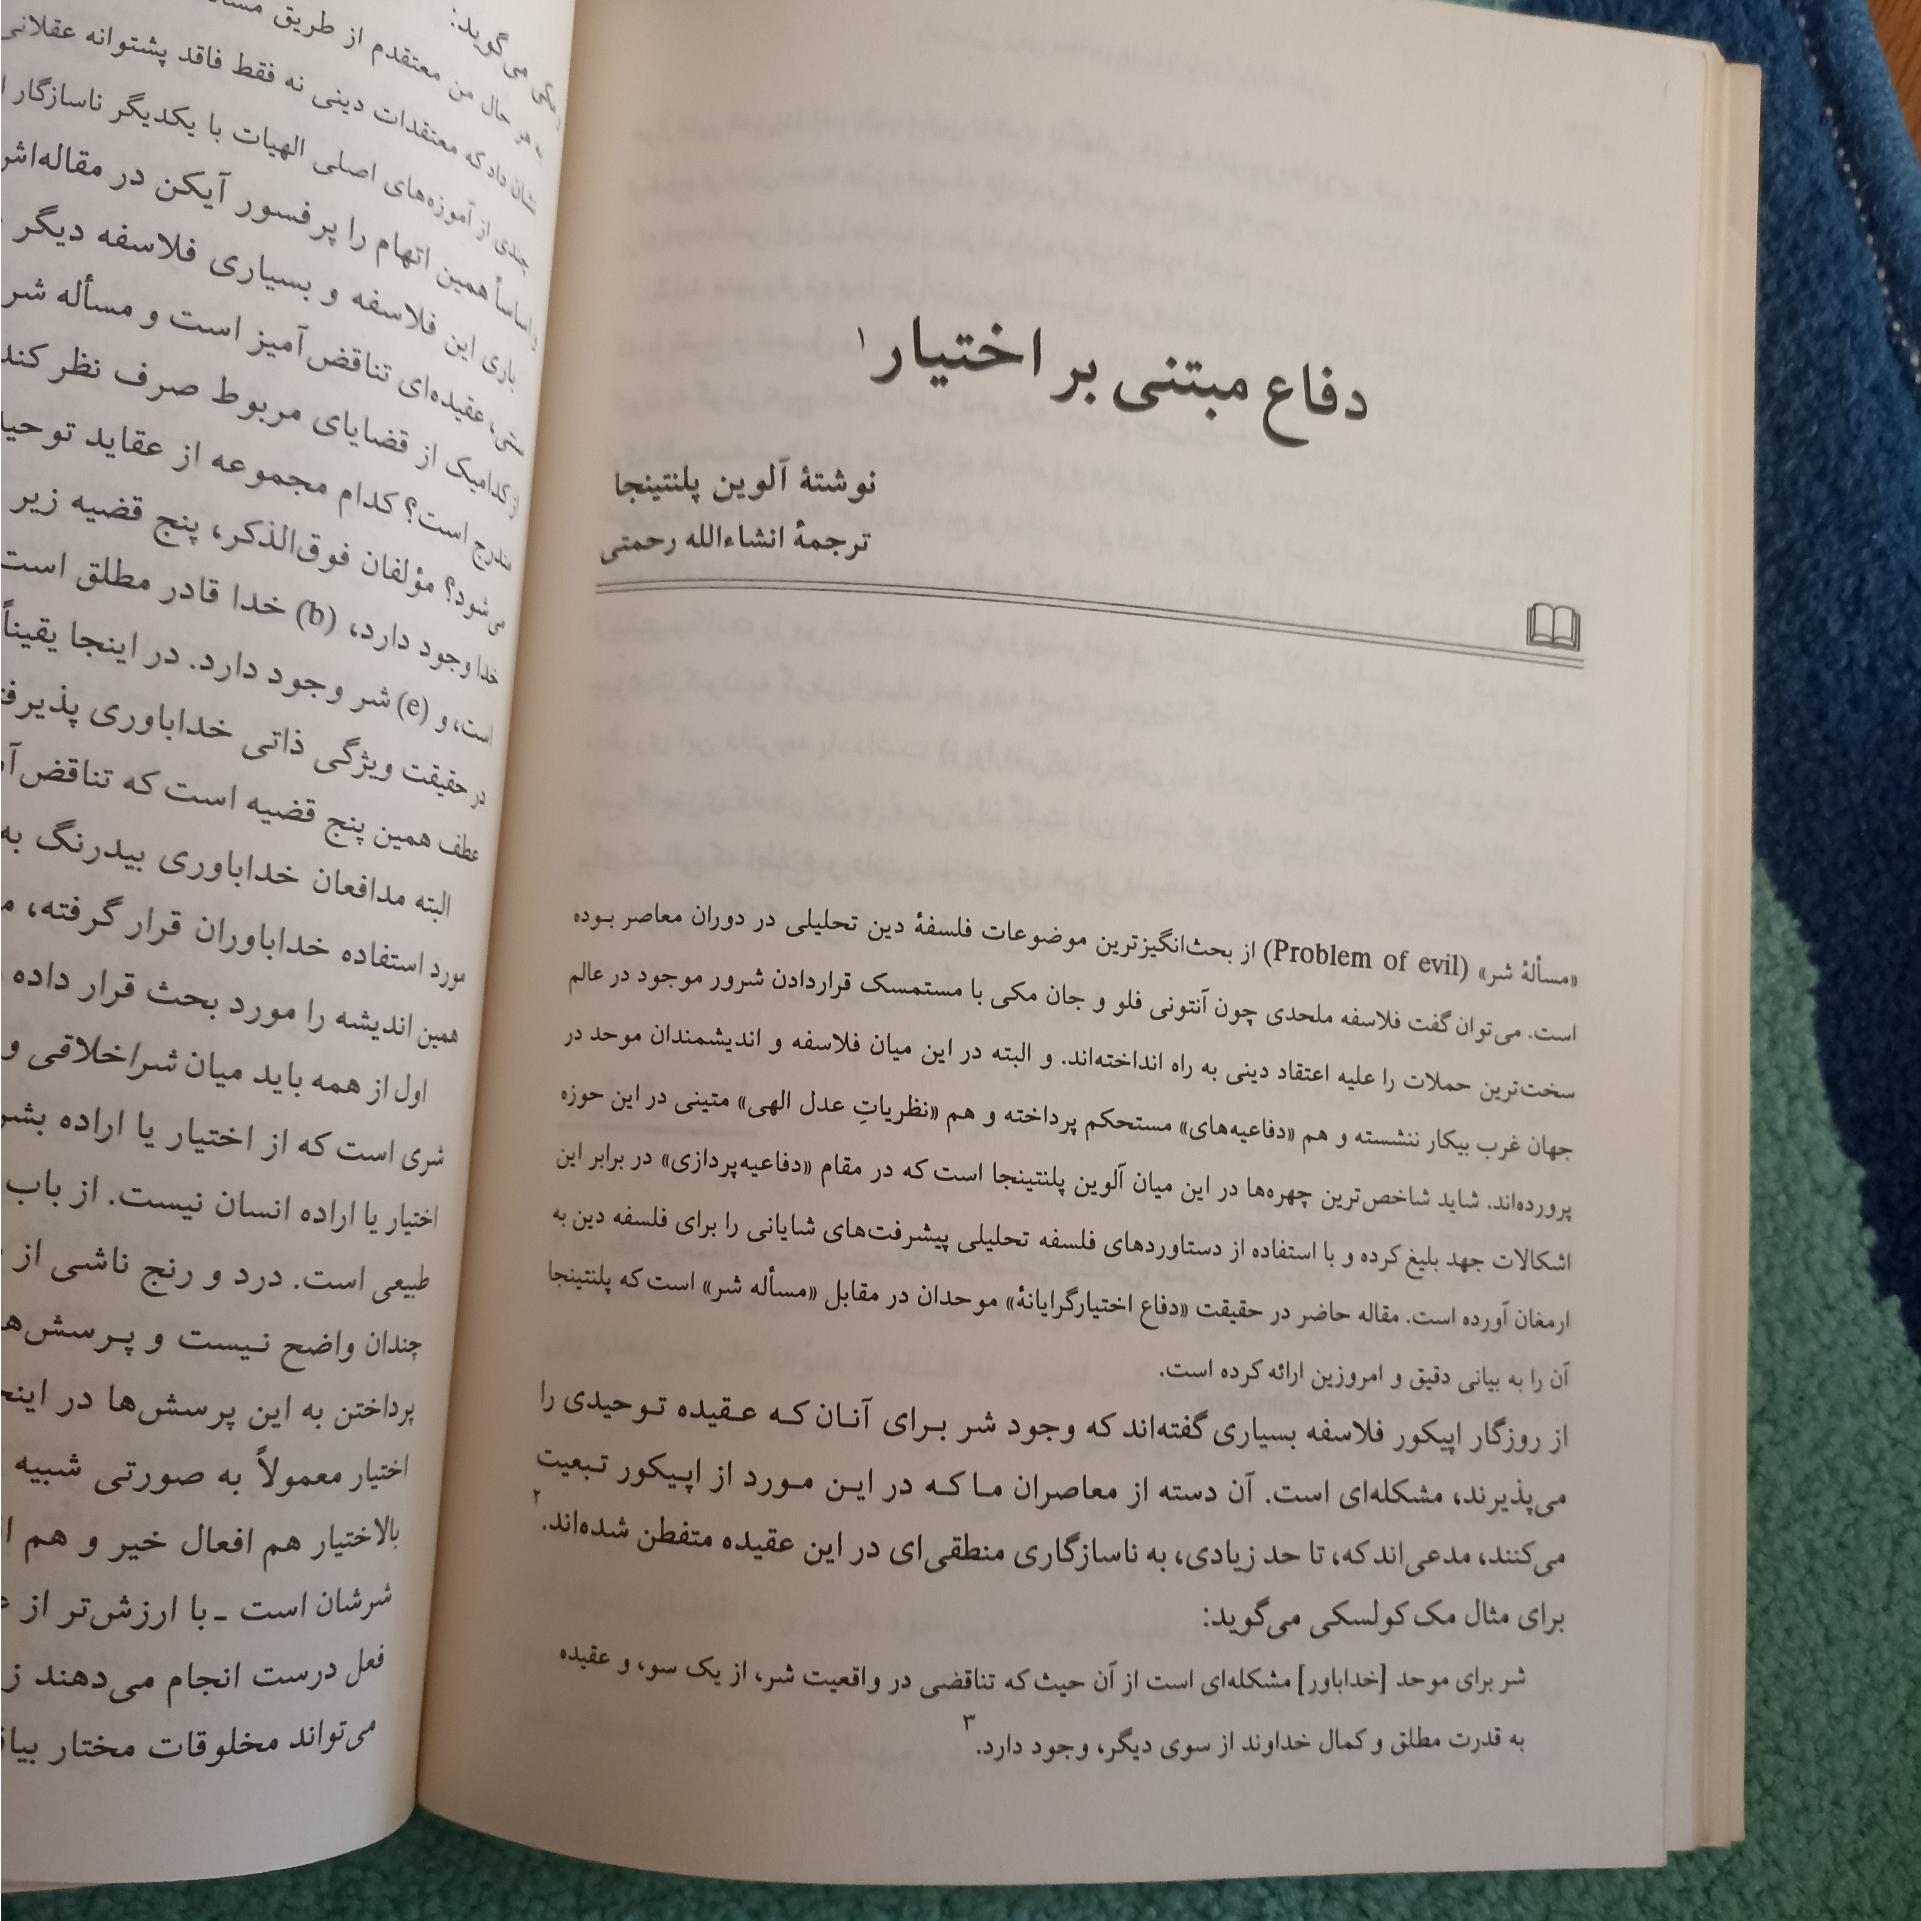 دفاع مبتنی بر اختیار ۱
نوشتهٔ آلوین پلنتینجا
ترجمهٔ انشاءالله رحمتی
«مسألهٔ شر» (Problem of evil) از بحث‌انگیزترین موضوعات فلسفهٔ دین تحلیلی در دوران معاصر بوده
است. می‌توان گفت فلاسفه ملحدی چون آنتونی فلو و جان مکی با مستمسک قراردادن شرور موجود در عالم
سخت‌ترین حملات را علیه اعتقاد دینی به راه انداخته‌اند. و البته در این میان فلاسفه و اندیشمندان موحد در
جهان غرب بیکار ننشسته و هم «دفاعیه‌های» مستحکم پرداخته و هم «نظریاتِ عدل الهی» متینی در این حوزه
پرورده‌اند. شاید شاخص‌ترین چهره‌ها در این میان آلوین پلنتینجا است که در مقام «دفاعیه‌پردازی» در برابر این
اشکالات جهد بلیغ کرده و با استفاده از دستاوردهای فلسفه تحلیلی پیشرفت‌های شایانی را برای فلسفه دین به
ارمغان آورده است. مقاله حاضر در حقیقت «دفاع اختیارگرایانهٔ» موحدان در مقابل «مسأله شر» است که پلنتینجا
آن را به بیانی دقیق و امروزین ارائه کرده است.
از روزگار اپیکور فلاسفه بسیاری گفته‌اند که وجود شر برای آنان که عقیده توحیدی را
می‌پذیرند، مشکله‌ای است. آن دسته از معاصران ما که در این مورد از اپیکور تبعیت
می‌کنند، مدعی‌اند که، تا حد زیادی، به ناسازگاری منطقی‌ای در این عقیده متفطن شده‌اند.۲
برای مثال مک کولسکی می‌گوید:
شر برای موحد [خداباور] مشکله‌ای است از آن حیث که تناقضی در واقعیت شر، از یک سو، و عقیده
به قدرت مطلق و کمال خداوند از سوی دیگر، وجود دارد.۳
مکی می‌گوید:
به هر حال من معتقدم از طریق
نشان داد که معتقدات دینی نه فقط فاقد پشتوانه عقلانی
چندی از آموزه‌های اصلی الهیات با یکدیگر ناسازگار
و اساساً همین اتهام را پرفسور آیکن در مقاله‌اش
باری این فلاسفه و بسیاری فلاسفه دیگر
عقیده‌ای تناقض‌آمیز است و مسأله شر
از کدامیک از قضایای مربوط صرف نظر کند
مندرج است؟ کدام مجموعه از عقاید
می‌شود؟ مؤلفان فوق‌الذکر، پنج قضیه زیر
خدا وجود دارد، (b) خدا قادر مطلق است
است، و (e) شر وجود دارد. در اینجا یقیناً
در حقیقت ویژگی ذاتی خداباوری
عطف همین پنج قضیه است که
البته مدافعان خداباوری بیدرنگ به
مورد استفاده خداباوران قرار گرفته،
همین اندیشه را مورد بحث قرار داده
اول از همه باید میان شراخلاقی و
شری است که از اختیار یا اراده
اختیار یا اراده انسان نیست. از باب
طبیعی است. درد و رنج ناشی از
چندان واضح نیست و
پرداختن به این پرسش‌ها در
اختیار معمولاً به صورتی شبیه
بالاختیار هم افعال خیر و هم
شرشان است ـ با ارزش‌تر از
فعل درست انجام می‌دهند
می‌تواند مخلوقات مختار